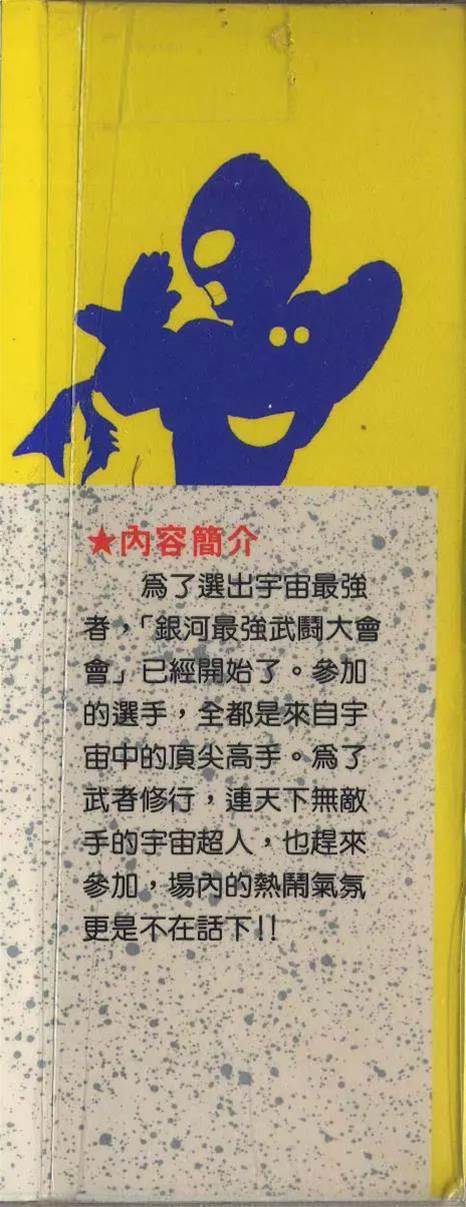 ★內容簡介
爲了選出宇宙最強
者，「銀河最強武鬪大會
會」已經開始了。參加
的選手，全都是來自宇
宙中的頂尖高手。爲了
武者修行，連天下無敵
手的宇宙超人，也趕來
參加，場內的熱鬧氣氛
更是不在話下!!